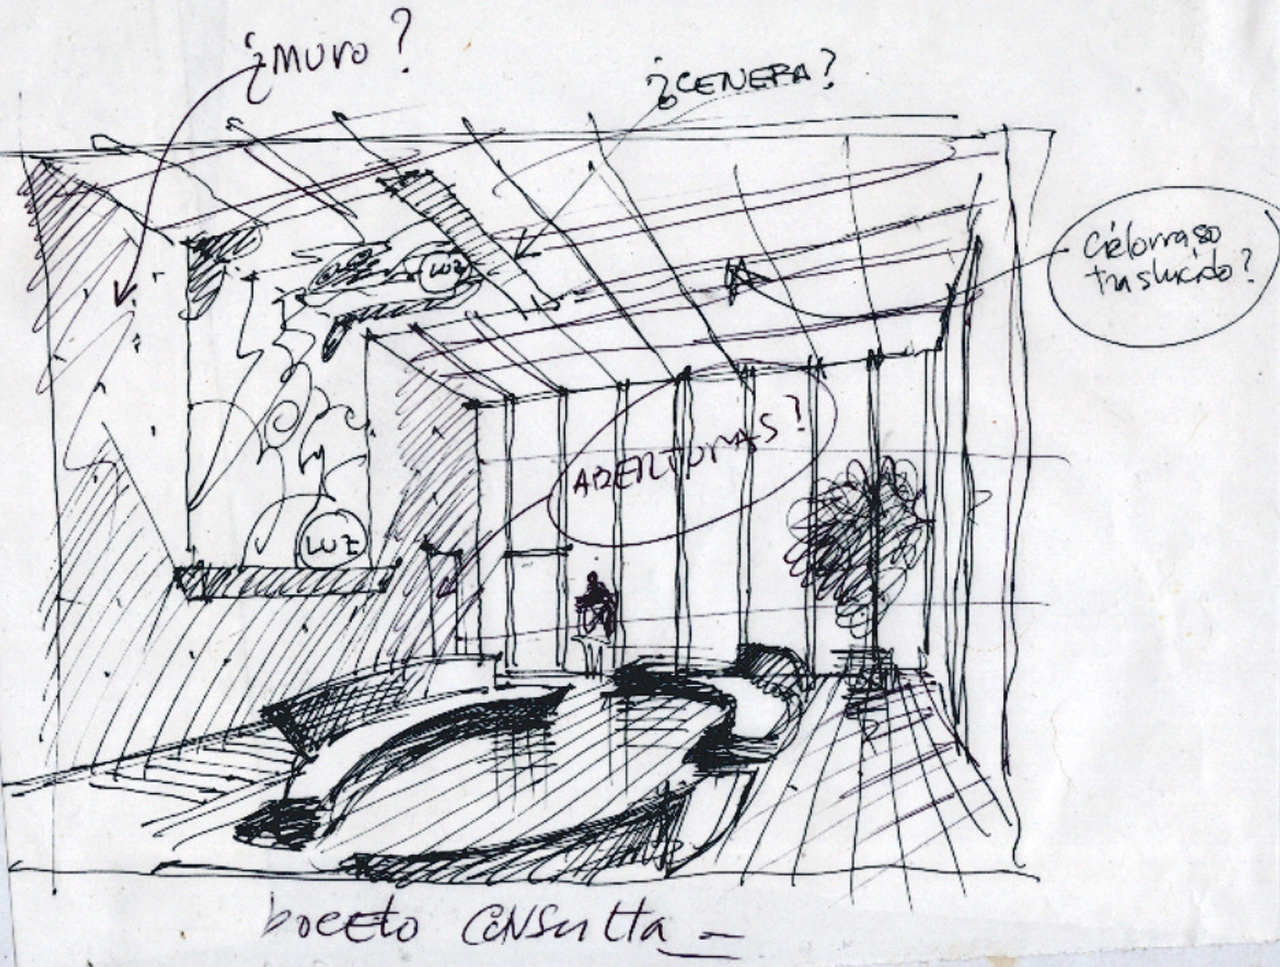 ¿MURO?
¿CENEFA?
Cielorraso
traslucido?
LUZ
ABERTURAS?
LUZ
boceto CONSULTA_